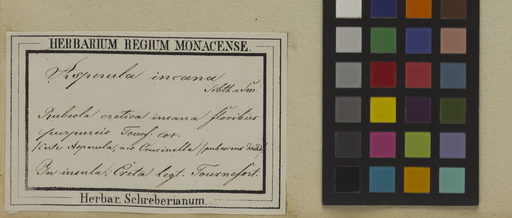 HERBARIUM REGIUM MONACENSE.
Asperula incana
Sibth. & Sm.
Rubeola cretica incana floribus
purpureis Tourf. cor.
(certe Asperula, nec Crucinella
In insula Creta legt. Tournefort.
Herbar. Schreberianum.